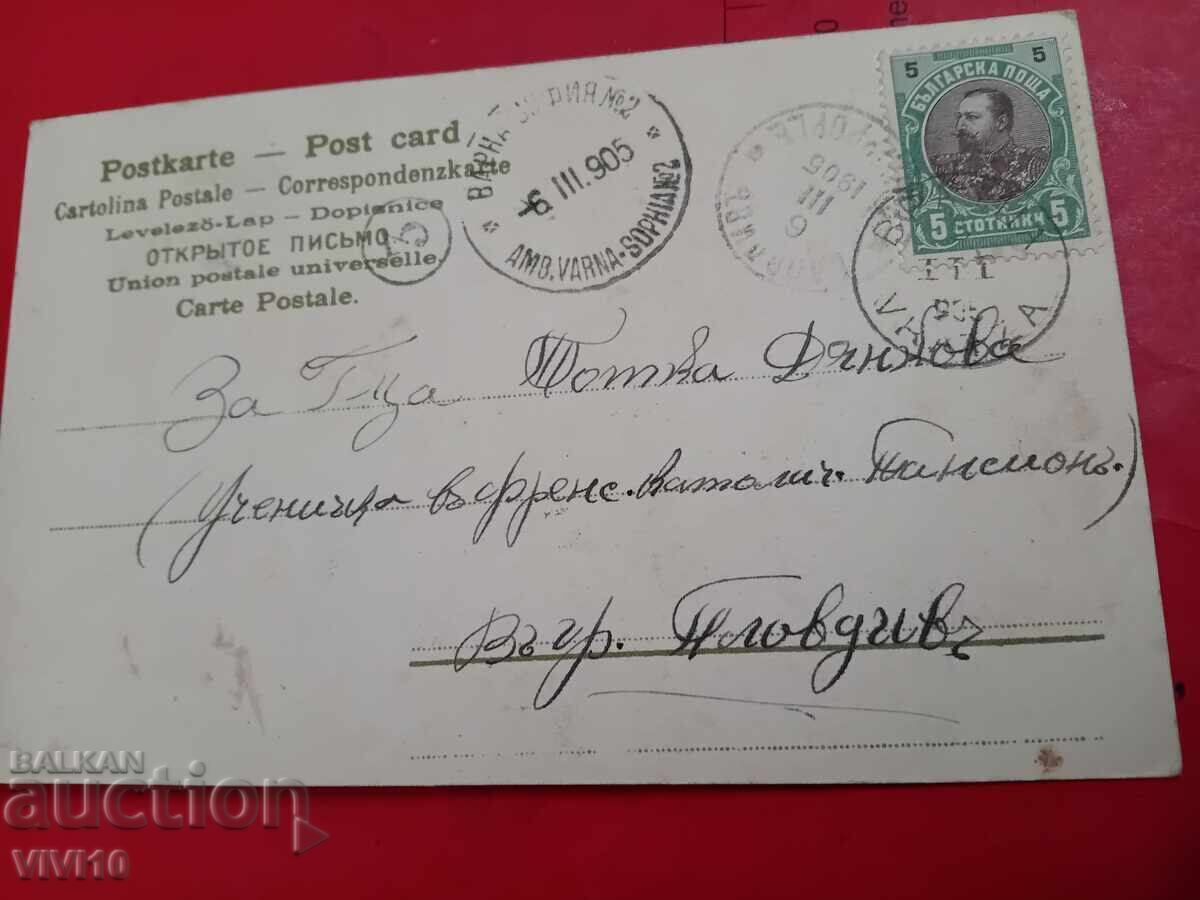 Postkarte — Post card
Cartolina Postale — Correspondenzkarte
Levelezö-Lap — Dopisnice
ОТКРЫТОЕ ПИСЬМО
Union postale universelle.
Carte Postale.
ВАРНА СОФИЯ №2
6 III.905
AMB.VARNA-SOPHIA №2
6
III
1905
5 5
БЪЛГАРСКА ПОЩА
5 СТОТИНКИ 5
III
905
За Г-ца Тотка
(Ученичка въ френс. католич. Пансионъ.)
Въ гр. Пловдивъ
BALKAN
auction
VIVI10